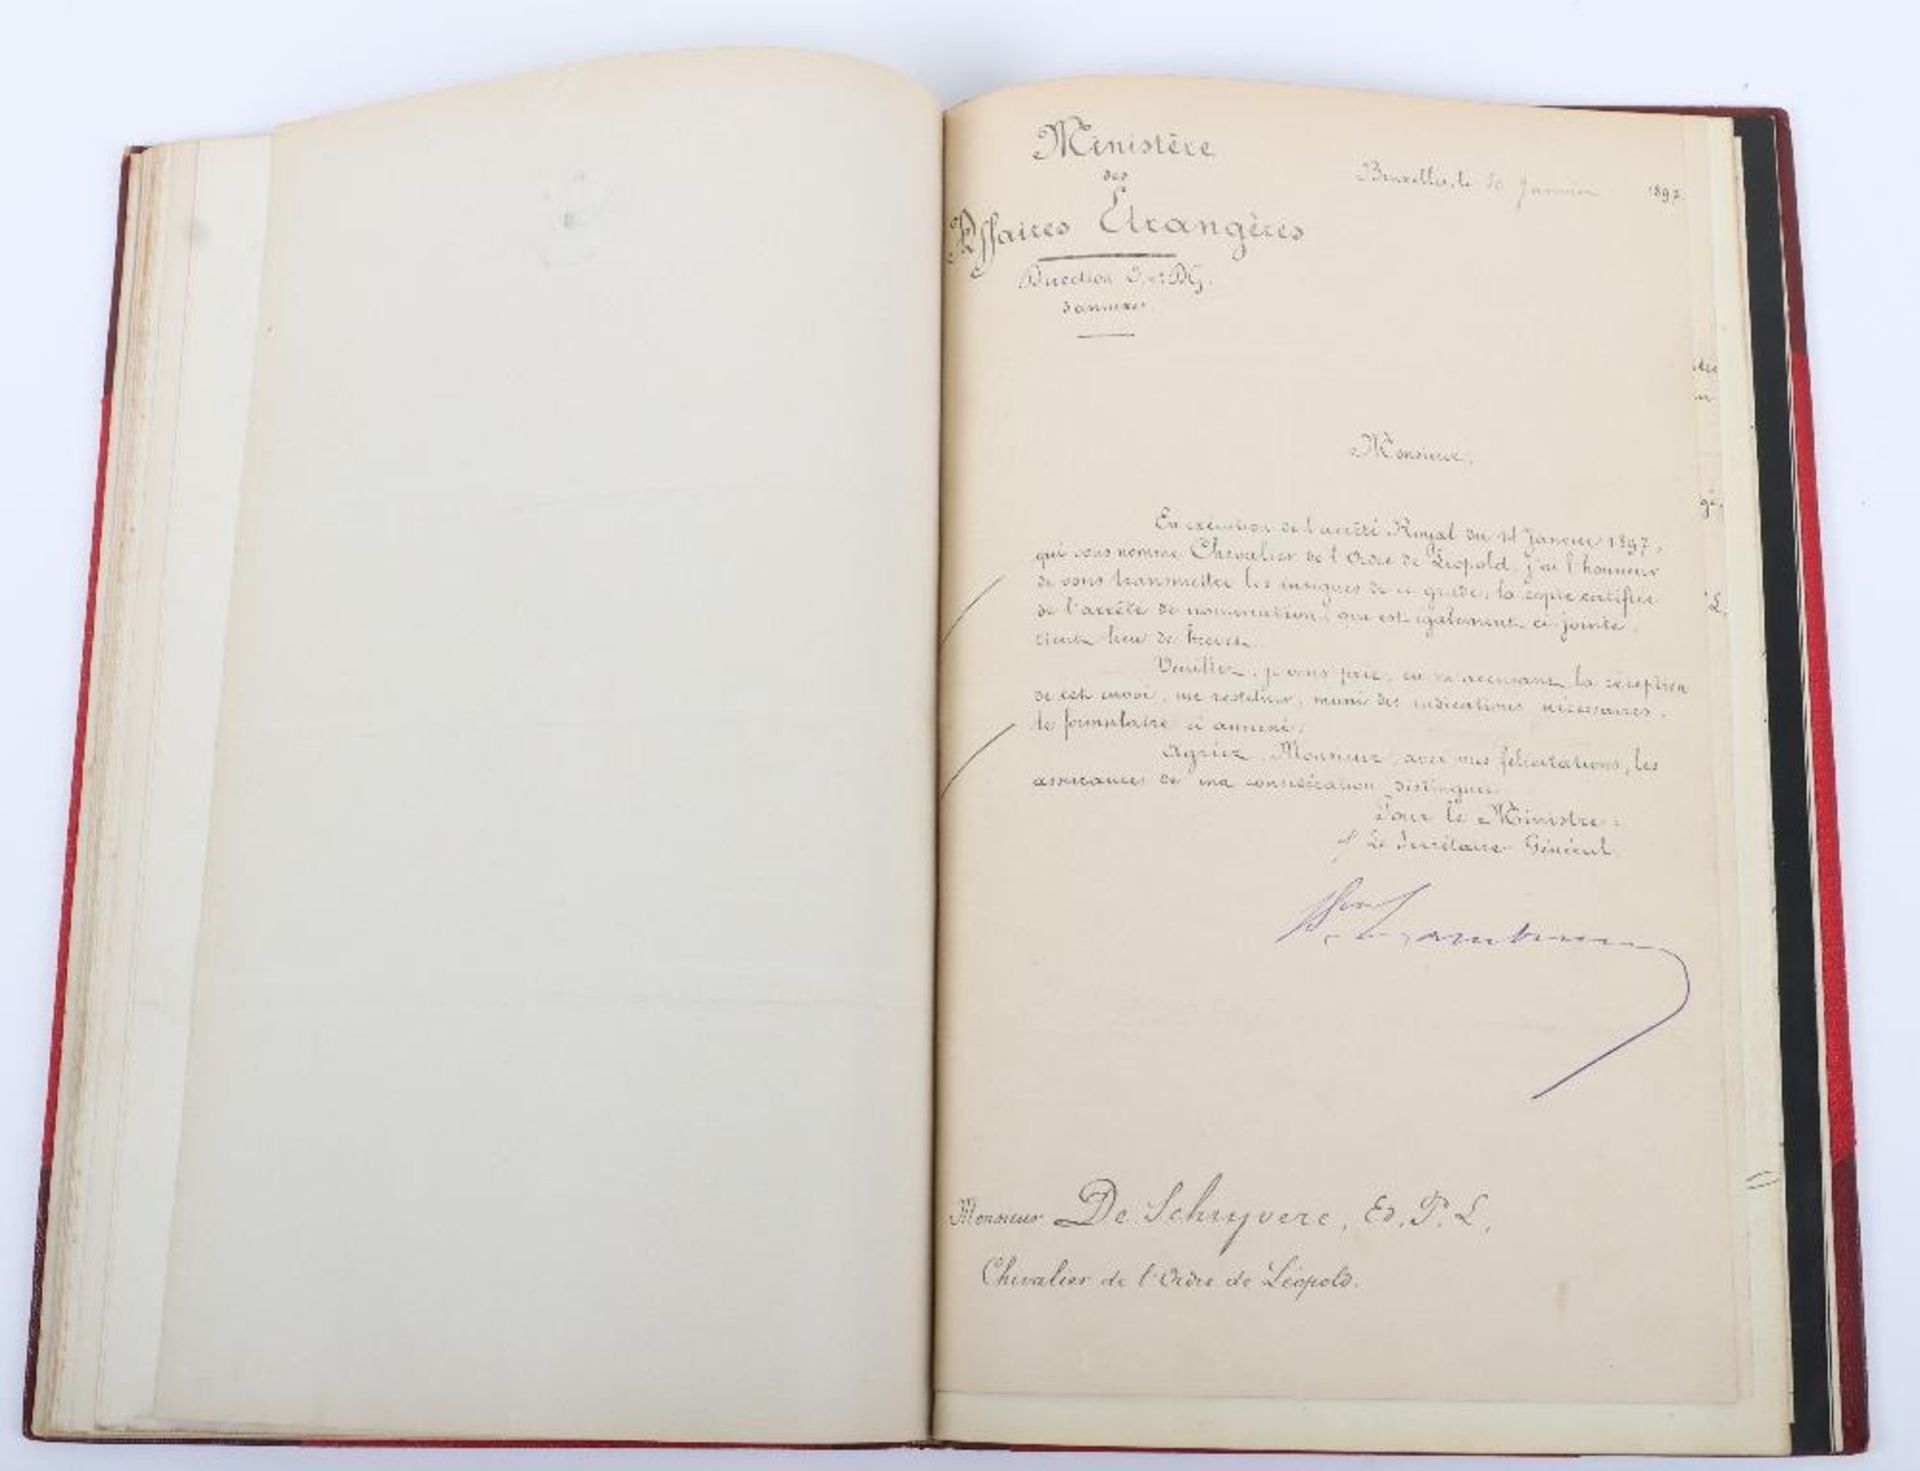 Ministère
des
Affaires Etrangères
Bruxelles, le Janvier 1897
Direction
Monsieur,
En exécution de l'arrêté Royal du 14 Janvier 1897,
qui vous nomme Chevalier de l'Ordre de Léopold, j'ai l'honneur
de vous transmettre les insignes de ce grade; la copie certifiée
de l'arrêté de nomination, qui est également ci-jointe,
tient lieu de brevet.
Veuillez, je vous prie, en accusant la réception
de cet envoi, me restituer, muni des indications nécessaires,
le formulaire ci annexé.
Agréez, Monsieur, avec mes félicitations, les
assurances de ma considération distinguée.
Pour le Ministre:
Le Secrétaire Général,
Monsieur De Schryvere, Ed. P. L.
Chevalier de l'Ordre de Léopold.